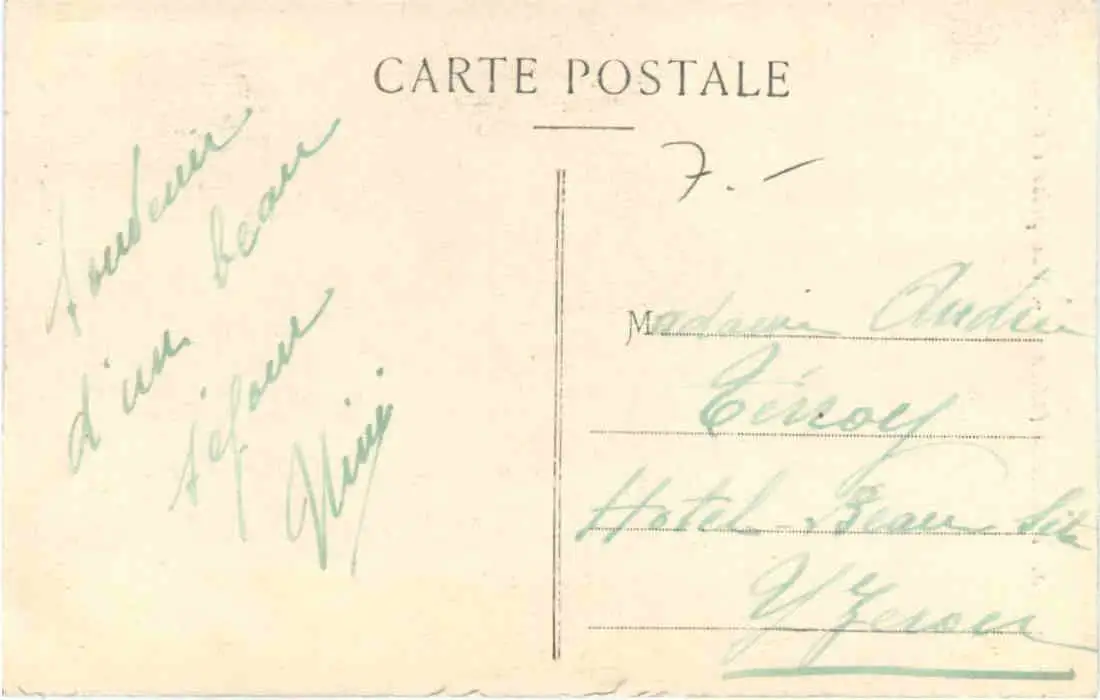 CARTE POSTALE
7.-
Souvenir
d'un beau
séjour
Madame Andrée
Hotel-Beau Site
Yzeron